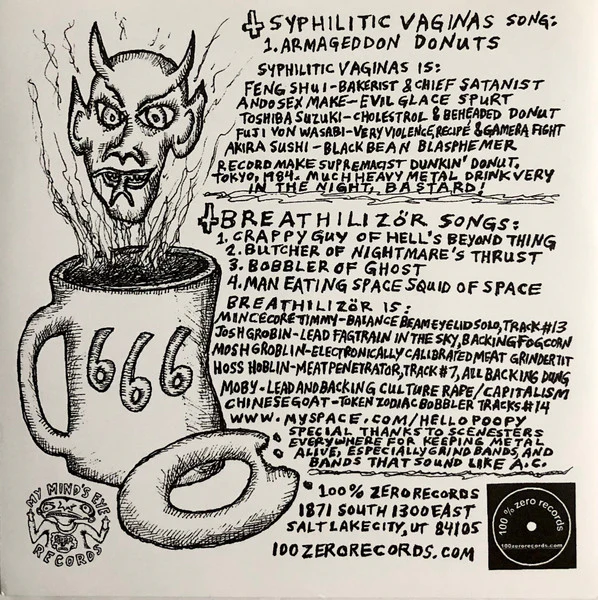 SYPHILITIC VAGINAS SONG:
1. ARMAGEDDON DONUTS
SYPHILITIC VAGINAS IS:
FENG SHUI-BAKERIST & CHIEF SATANIST
ANDOSEX MAKE-EVIL GLACE SPURT
TOSHIBA SUZUKI-CHOLESTROL & BEHEADED DONUT
FUJI VON WASABI-VERY VIOLENCE, RECIPE & GAMERA FIGHT
AKIRA SUSHI-BLACK BEAN BLASPHEMER
RECORD MAKE SUPREMAGIST DUNKIN' DONUT.
TOKYO, 1984. MUCH HEAVY METAL DRINK VERY
IN THE NIGHT, BASTARD!
BREATHILIZÖR SONGS:
1. CRAPPY GUY OF HELL'S BEYOND THING
2. BUTCHER OF NIGHTMARE'S THRUST
3. BOBBLER OF GHOST
4. MAN EATING SPACE SQUID OF SPACE
BREATHILIZÖR IS:
MINCECORE TIMMY-BALANCE BEAM EYELID SOLO, TRACK #13
JOSH GROBIN-LEAD FAGTRAIN IN THE SKY, BACKING FOGCORN
MOSH GROBLIN-ELECTRONICALLY CALIBRATED MEAT GRINDER TIT
HOSS HOBLIN-MEAT PENETRATOR, TRACK #7, ALL BACKING DUNG
MOBY-LEAD AND BACKING CULTURE RAPE/CAPITALISM
CHINESEGOAT-TOKEN ZODIAC BOBBLER TRACKS #14
WWW.MYSPACE.COM/HELLOPOOPY
SPECIAL THANKS TO SCENESTERS
EVERYWHERE FOR KEEPING METAL
ALIVE, ESPECIALLY GRIND BANDS, AND
BANDS THAT SOUND LIKE A.C.
666
MY MIND'S EYE
RECORDS
100% ZERO RECORDS
1871 SOUTH 1300 EAST
SALT LAKE CITY, UT 84105
100ZERORECORDS.COM
100% zero records
100zerorecords.com